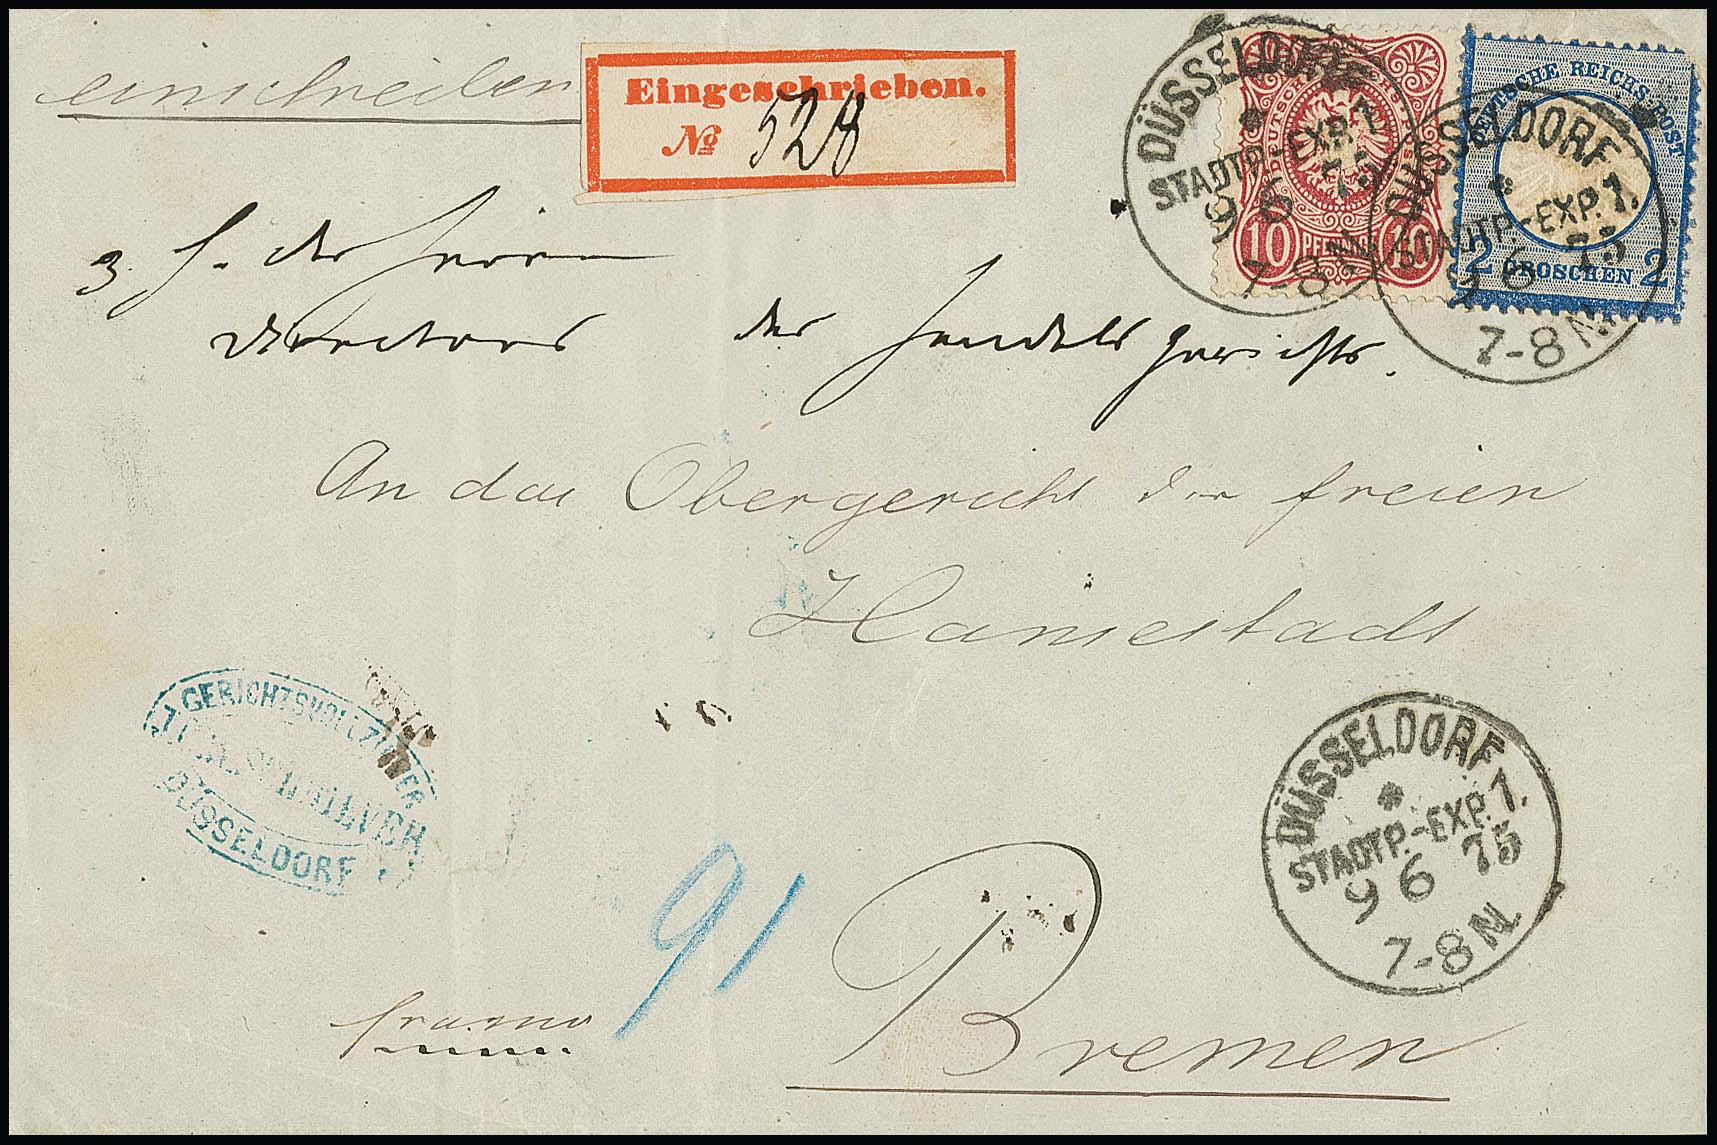 einschreiben
Eingeschrieben.
No 528
DÜSSELDORF
STADTP.-EXP.1.
9 6 75
7-8 N.
DEUTSCHE REICHS-POST
10 PFENNIGE 10
DÜSSELDORF
STADTP.-EXP.1.
9 6 75
7-8 N.
DEUTSCHE REICHS-POST
2 GROSCHEN 2
z. H. des Herrn
Directors des Handelsgerichts.
An das Obergericht der freien
Hansestadt
GERICHTSVOLLZIEHER
DÜSSELDORF
DÜSSELDORF
STADTP.-EXP.1.
9 6 75
7-8 N.
91
franco
Bremen